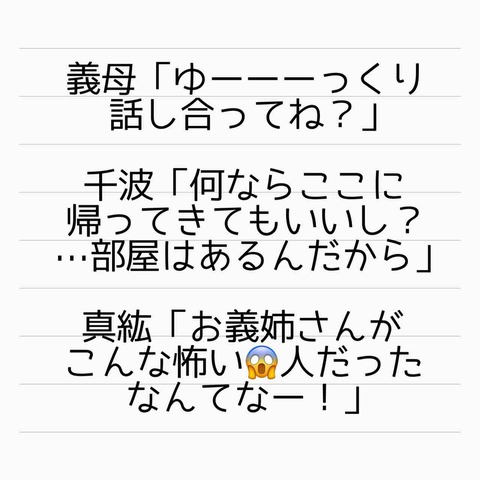 義母「ゆーーーっくり
話し合ってね？」
千波「何ならここに
帰ってきてもいいし？
…部屋はあるんだから」
真紘「お義姉さんが
こんな怖い😱人だった
なんてなー！」